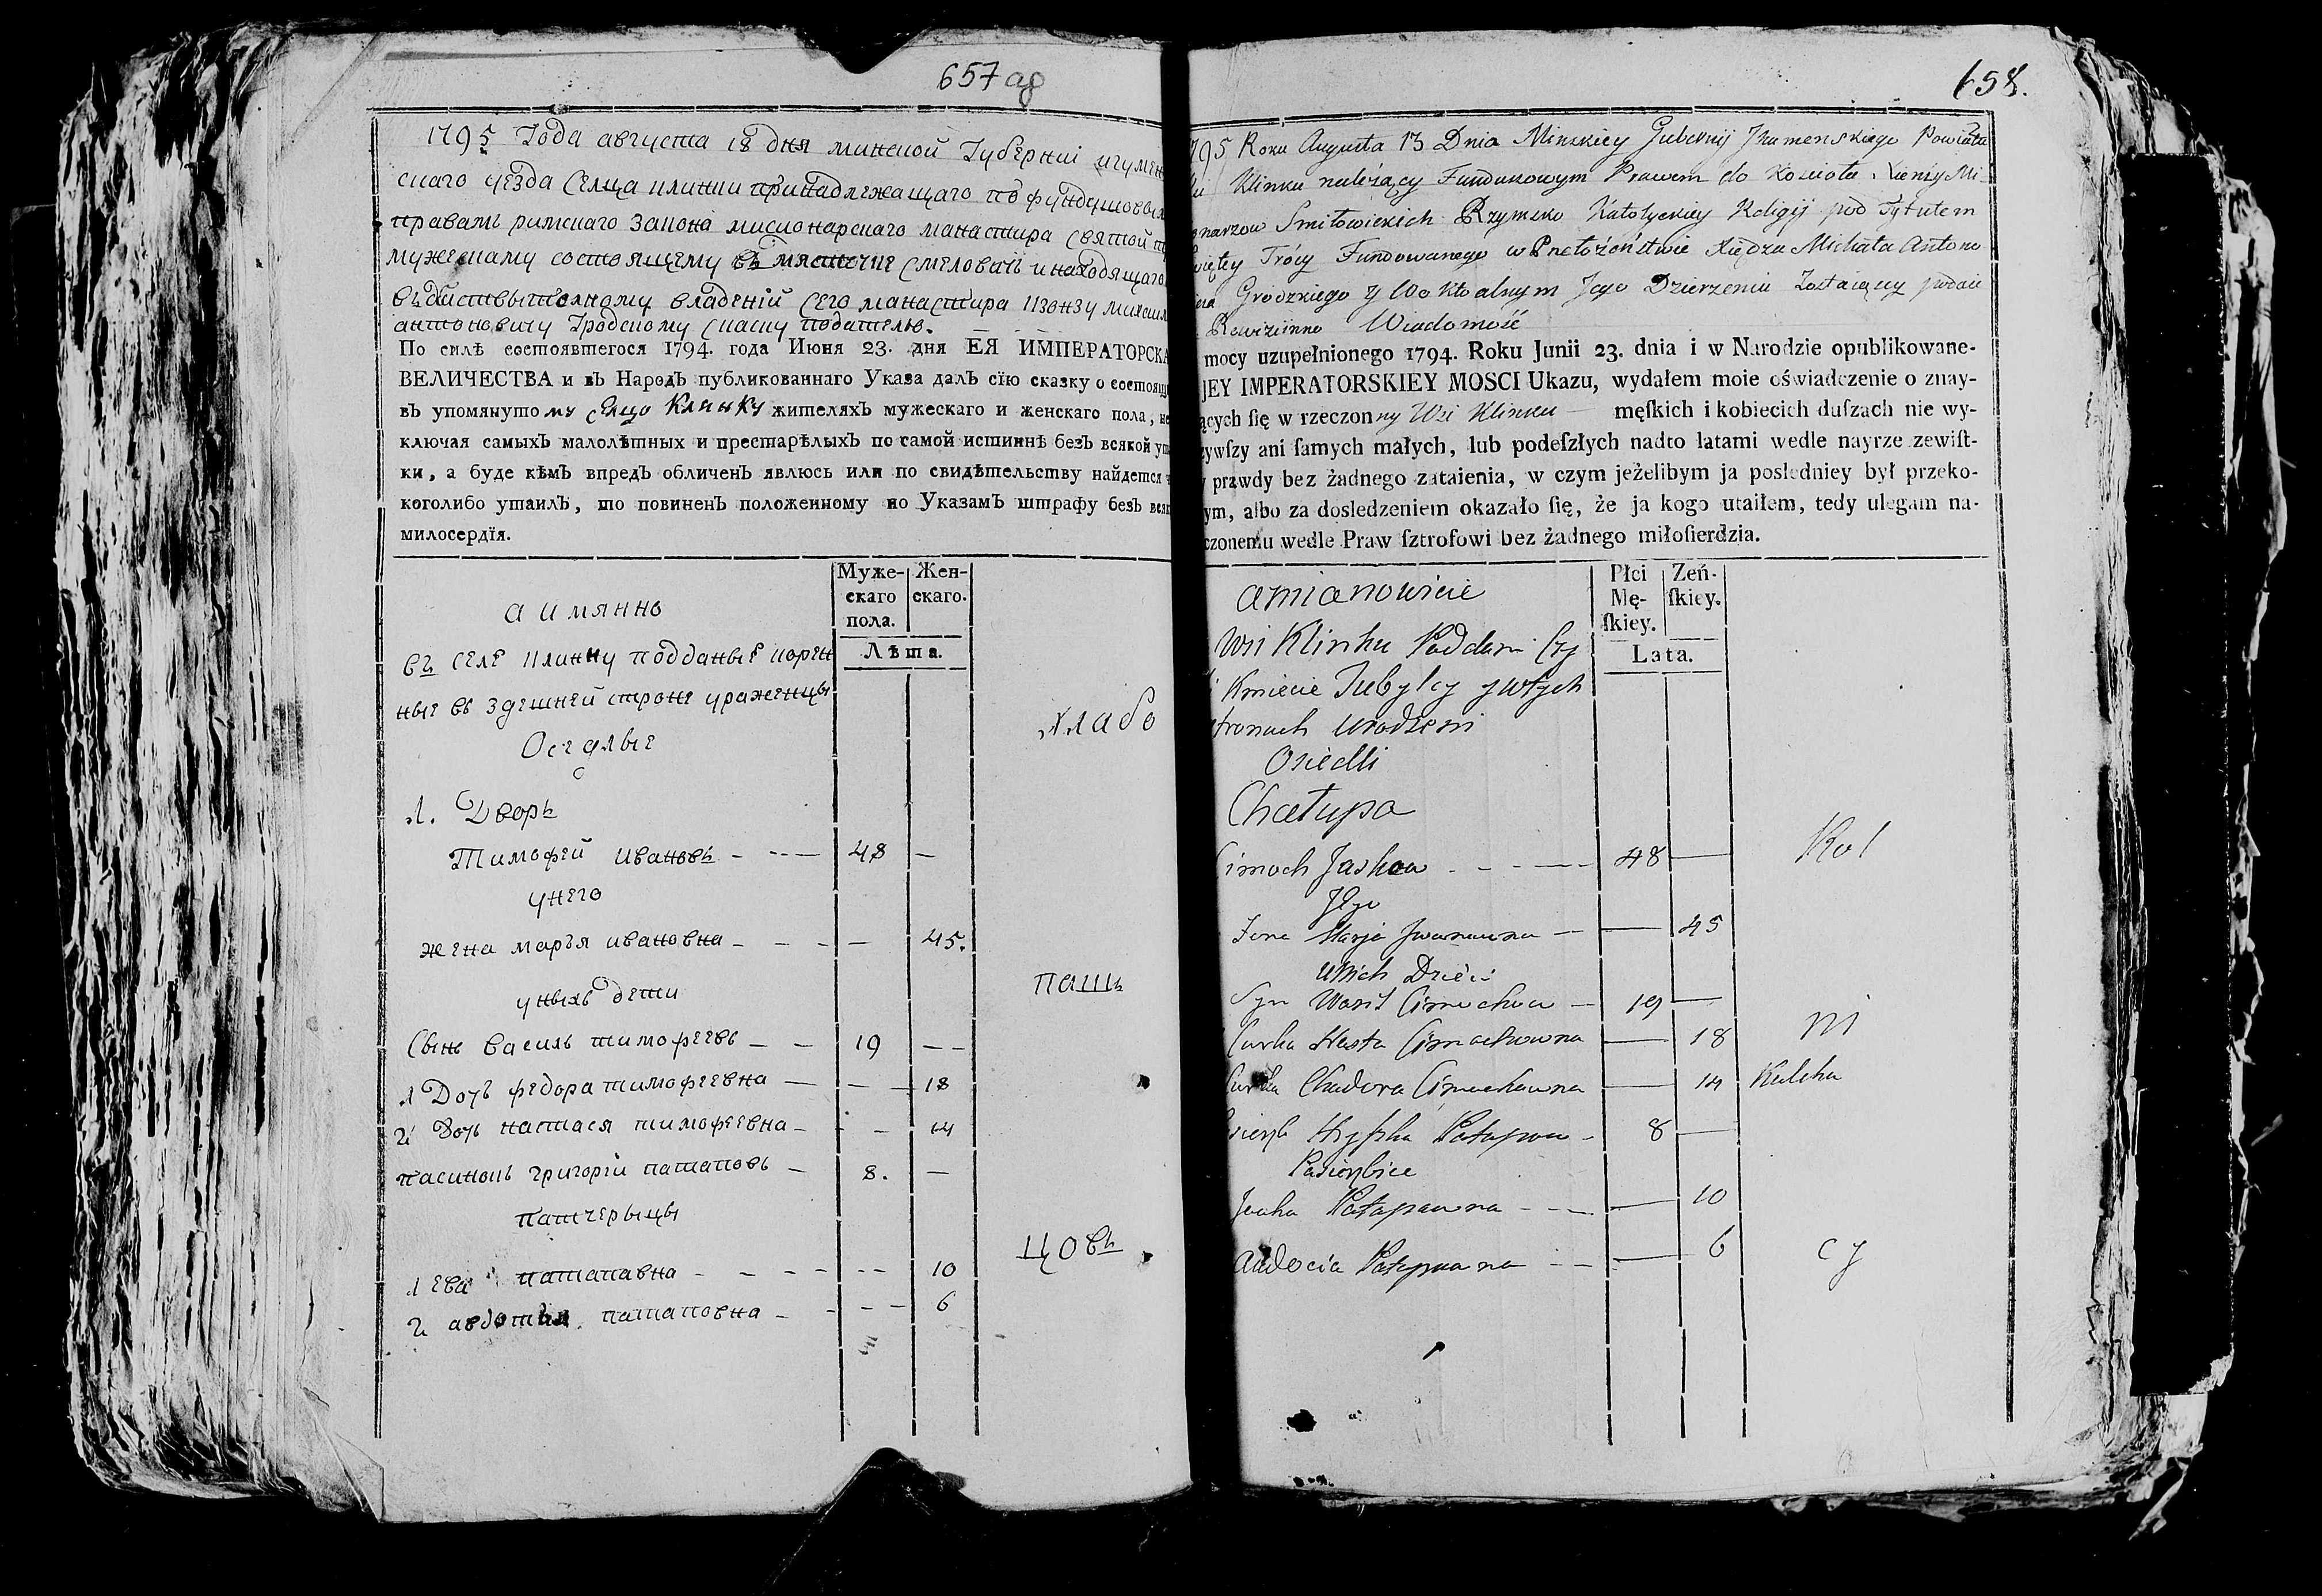 657 об
1795 Года августа 18 дня минской Губерниі игумен
скаго уезда селца клинки принадлежащаго по фундушовым
правамъ римскаго закона мисионарскаго манастира святой
мужескаму состоящему въ мястечке смеловичь инаходящаго
владениій сего манастира
антоновичу Гродскому скаску подателю.
По силѣ состоявшегося 1794. года Іюня 23. дня ЕЯ ИМПЕРАТОРСКА
ВЕЛИЧЕСТВА и въ НародЪ публикованнаго Указа далЪ сїю сказку о состоящ
въ упомянуто му селцо Клинку жителяхЪ мужескаго и женскаго пола, не
ключая самыхЪ малолѣтных и престарѣлыхЪ по самой истиннѣ безЪ всякой ута
ки, а буде кѣмЪ впредЪ обличенЪ явлюсь или по свидѣтельству найдется ч
коголибо утаилЪ, то повиненЪ положенному по УказамЪ штрафу безЪ всяк
милосердїя.
Муже-
скаго
пола.
Жен-
скаго.
Лѣта.
а имянно
въ селе клинку подданые корен
ные въ здешней строне уроженцы
Оседлые
хлабо
1. Дворъ
Тимофей ивановъ - - - — 48 —
унего
жена маръя ивановна - - - — 45.
унихъ дети
пашъ
Сынъ василь тимофеевъ — — 19 — —
1 Дочъ федора тимофеевна — — — 18
2 Дочь настася тимофеевна — - — 14
пасинокъ григорій патаповъ — 8. —
патчерыцы
цовъ
1 ева патаповна - - - - - - 10
2 авдотия патаповна - - - — 6
658.
795 Roku Augusta 13 Dnia Minskiey Gubernij Ihumenskiego Powiatu
Klinku należący Funduszowym Prawem do Kościoła Xienży Mi-
onarzow Smiłowickich Rzymsko Katolyckiey Religij pod Tytułem
więtey Tróycy Fundowanego w Przełożeństwie Xiędza Michała Antono
Grodzkiego y Dzierzeniu Zostaiący podaie
Rewiziinne Wiadomość
mocy uzupełnionego 1794. Roku Junii 23. dnia i w Narodzie opublikowane-
JEY IMPERATORSKIEY MOSCI Ukazu, wydałem moie oświadczenie o znay-
ących ſię w rzeczon ny Wsi Klinku — męſkich i kobiecich duſzach nie wy-
zywſzy ani ſamych małych, lub podeſzłych nadto latami wedle nayrze zewiſt-
y prawdy bez żadnego zataienia, w czym jeżelibym ja posledniey był przeko-
ym, albo za dosledzeniem okazało ſię, że ja kogo utaiłem, tedy ulegam na-
czonemu wedle Praw ſztrofowi bez żadnego miłoſierdzia.
Płci
Mę-
ſkiey.
Zeń-
ſkiey.
Lata.
amianowicie
Wsi Klinku Poddani Czy
Kmiecie Tubylcy y w tych
stronach Urodzeni
Osiedli
Chałupa
Cimoch Jaskow - - - — 48 —
Kol
Jego
Zona Marja Iwanowna — — 45
U Nich Dzieci
Syn Wasil Cimochow — 19 —
Curka Nasta Cimochowna — 18
ni
Curka Chadora Cimochowna — 14
Kulcha
Hryszka Potapow - 8 —
Pasierbice
Jewka Potapowna - - - — 10
Audocia Potapowna - - — 6
cy